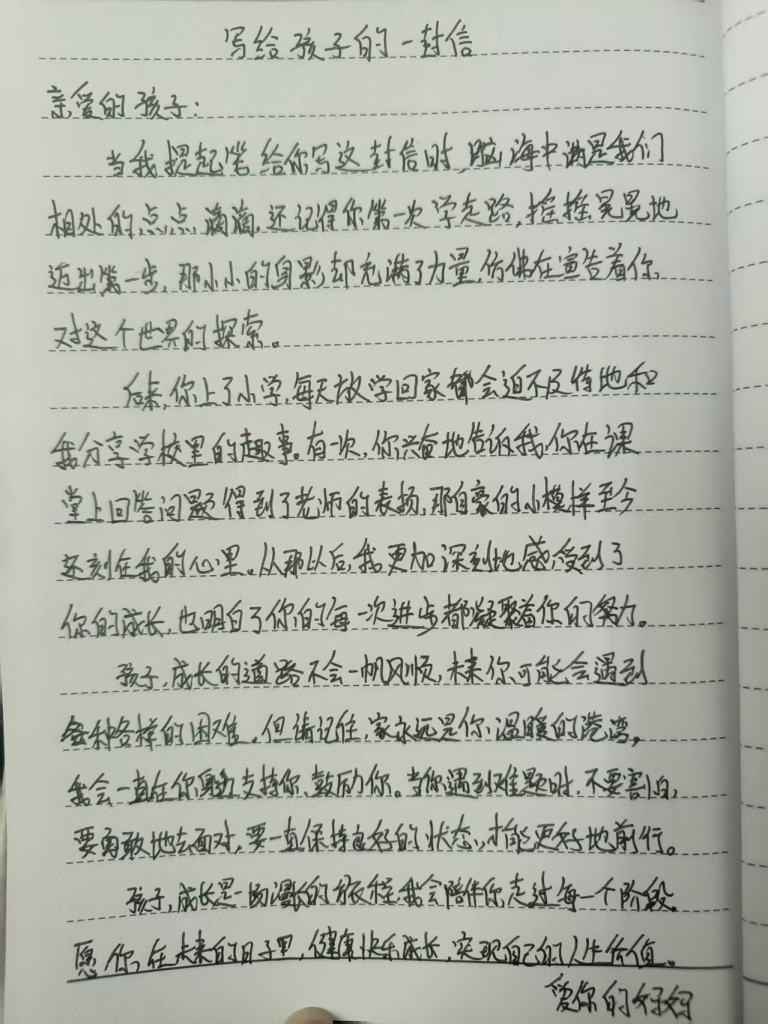 写给孩子的一封信
亲爱的孩子:
当我提起笔给你写这封信时,脑海中满是我们
相处的点点滴滴,还记得你第一次学走路,摇摇晃晃地
迈出第一步,那小小的身影却充满了力量,仿佛在宣告着你
对这个世界的探索。
后来,你上了小学,每天放学回家都会迫不及待地和
我分享学校里的趣事。有一次,你兴奋地告诉我,你在课
堂上回答问题得到了老师的表扬,那自豪的小模样至今
还刻在我的心里。从那以后,我更加深刻地感受到了
你的成长,也明白了你的每一次进步都凝聚着你的努力。
孩子,成长的道路不会一帆风顺,未来你可能会遇到
各种各样的困难。但请记住,家永远是你温暖的港湾,
我会一直在你身边支持你、鼓励你。当你遇到难题时,不要害怕,
要勇敢地去面对,要一直保持良好的状态,才能更好地前行。
孩子,成长是一场漫长的旅程,我会陪伴你走过每一个阶段。
愿你在未来的日子里,健康快乐成长,实现自己的人生价值。
爱你的妈妈